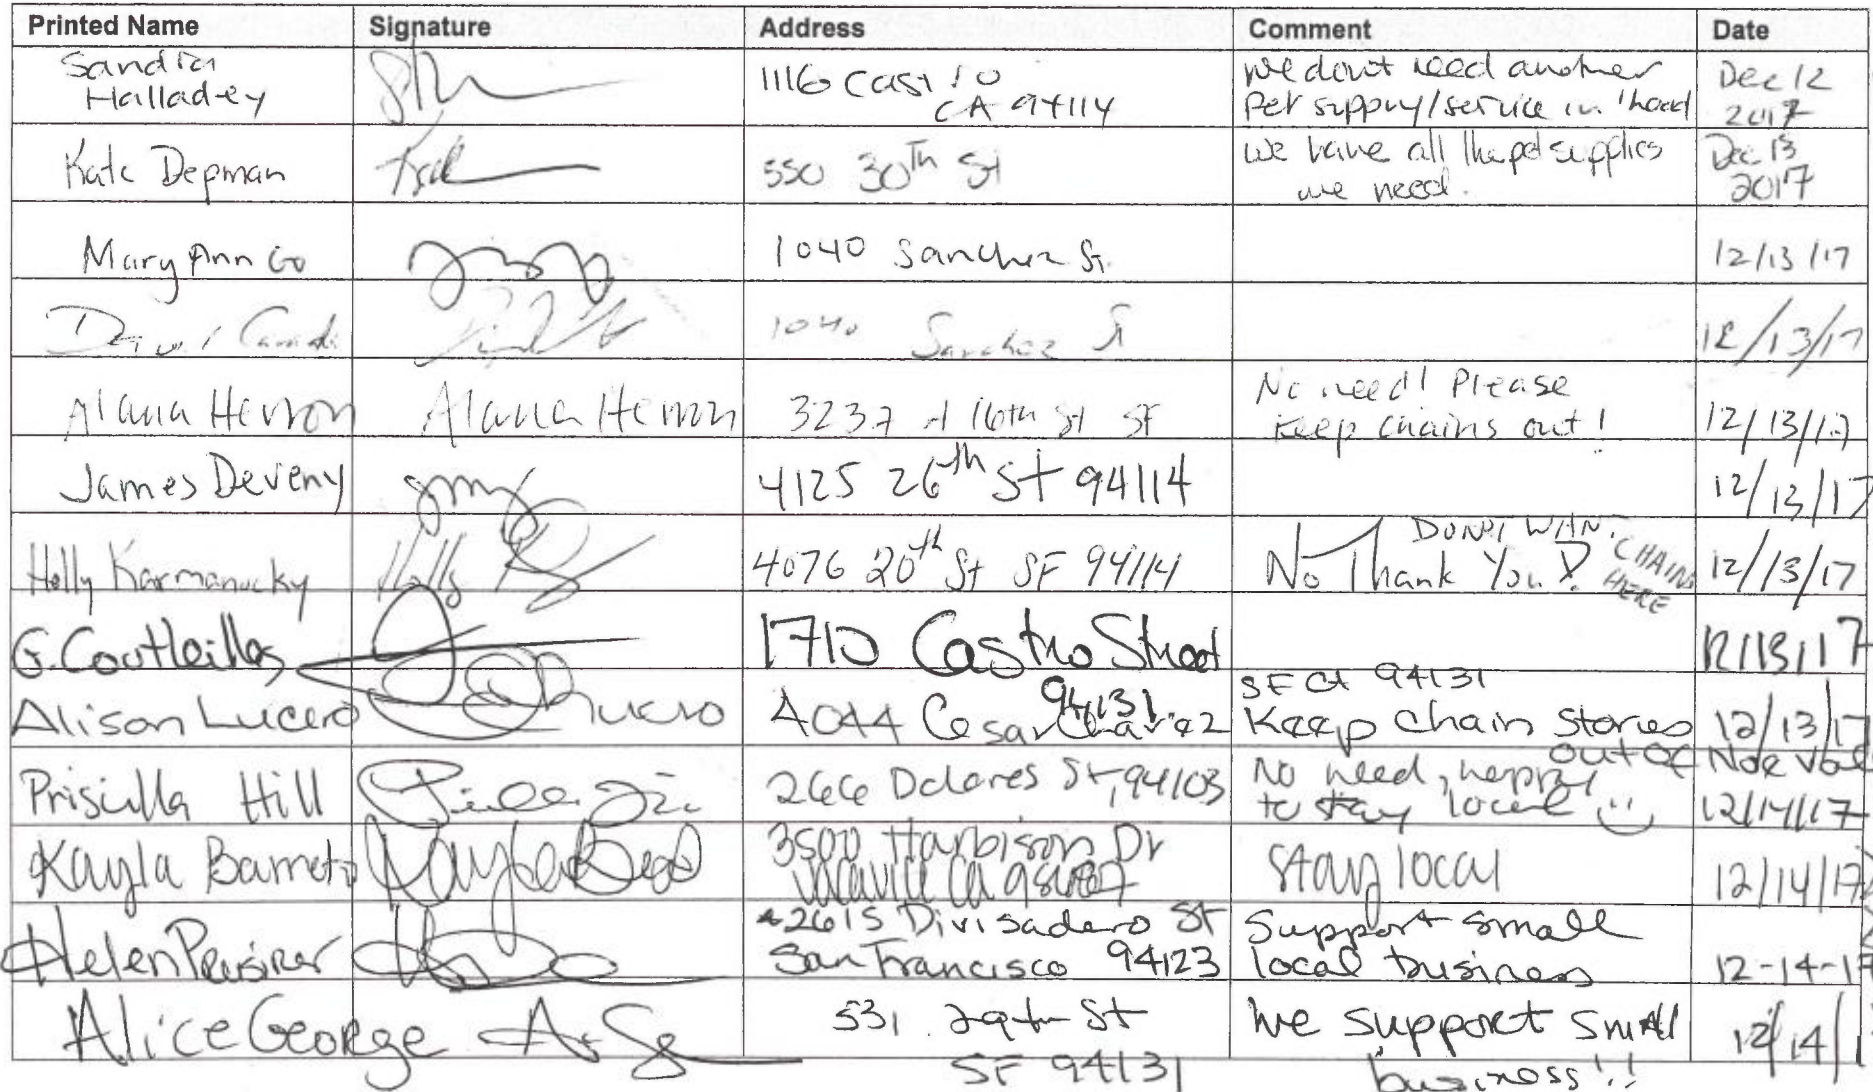 Printed Name Signature Address Comment Date
Sandra Halladey 1116 Castro CA 94114 We don't need another pet supply/service in 'hood Dec 12 2017
Kate Depman 550 30th St We have all the pet supplies we need. Dec 13 2017
Mary Ann Go 1040 Sanchez St. 12/13/17
David 1040 Sanchez St 12/13/17
Alana Herron Alana Herron 3237 A 16th St SF No need! Please keep chains out! 12/13/17
James Deveny 4125 26th St 94114 12/13/17
Holly Karmanocky Holly 4076 20th St SF 94114 No Thank You! DON'T WANT CHAINS HERE 12/13/17
G. 1710 Castro Street 12/13/17
Alison Lucero Lucero 4044 Cesar Chavez 94131 SF CA 94131 Keep chain stores out of Noe Val 12/13/17
Priscilla Hill 266 Dolores St, 94103 No need, happy to stay local 12/14/17
Kayla Barreto 3500 Harbison Dr Vacaville Ca Stay local 12/14/17
Helen 2615 Divisadero St San Francisco 94123 Support small local business 12-14-17
Alice George 531 29th St SF 94131 We support small business!! 12/14/1